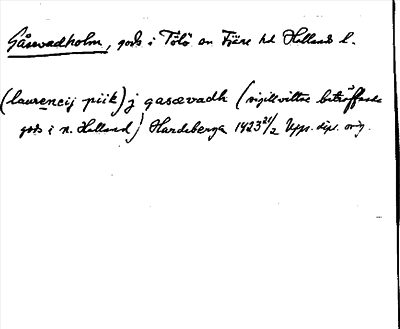 Gåsevadholm, gods i Tölö sn Fjäre hd Hallands l.
(laurencij piik) j gasævadh (sigillvittne beträffande
gods i n. Halland) Hardeberga 1423 21/2 Upps. dipl. orig.